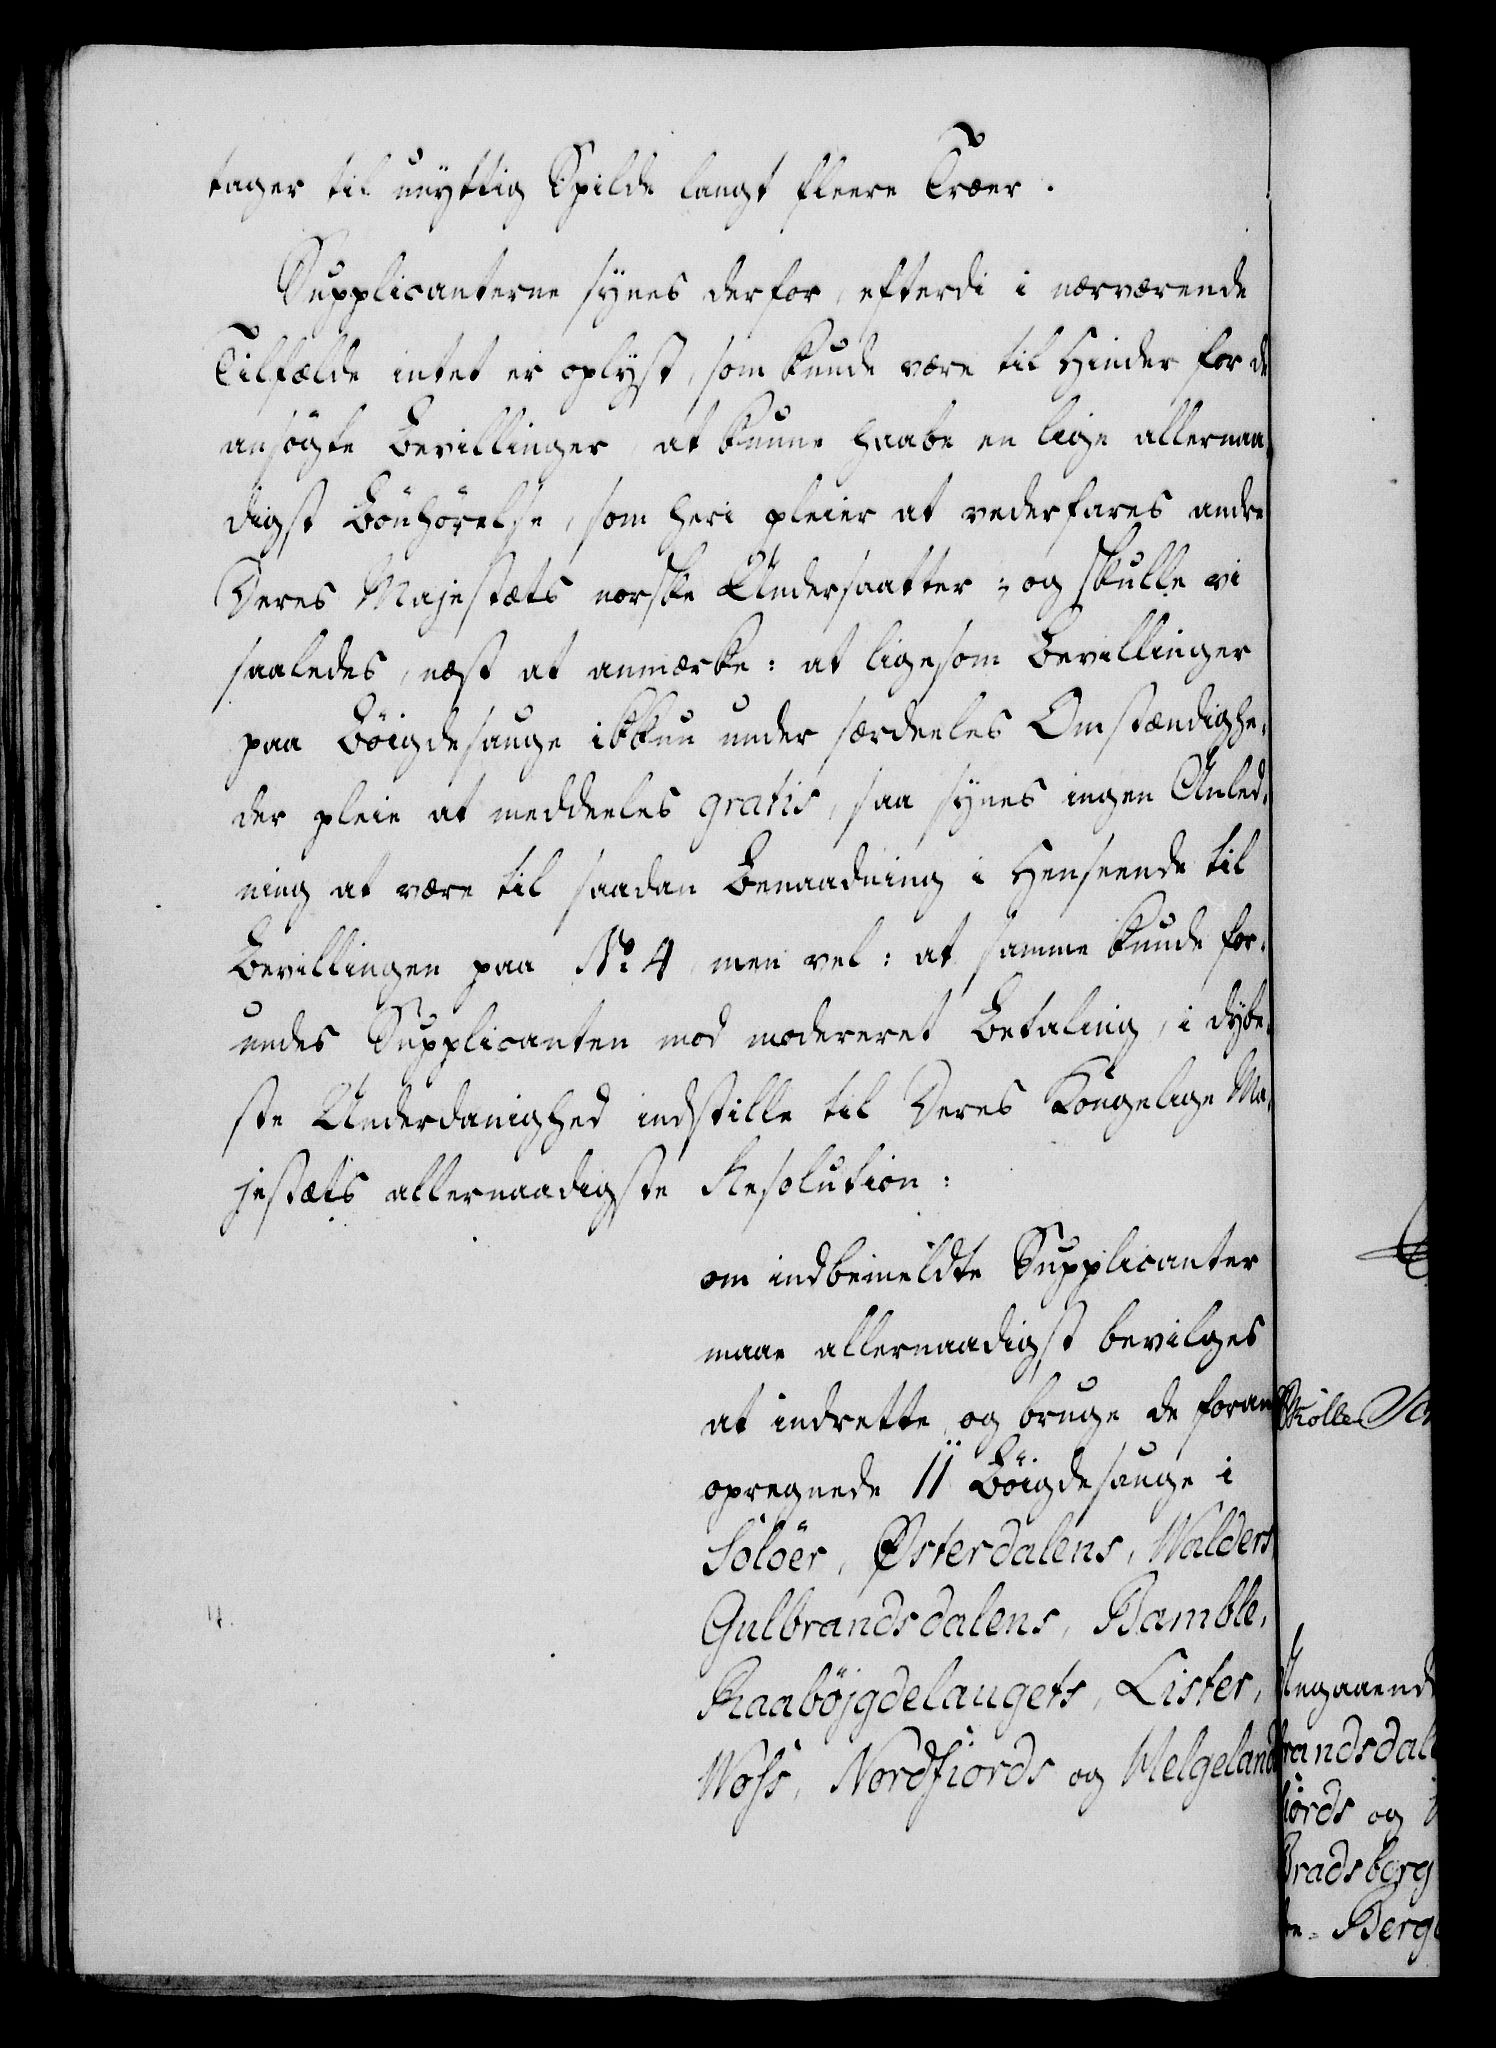 tager til unyttig Spilde langt fleere Træer.
Supplicanterne synes derfor, efterdi i nærværende
Tilfælde intet er oplyst, som kunde være til Hinder for de
ansögte Bevillinger, at kunne haabe en lige allernaa,
digst Bönhörelse, som heri pleier at vederfares andre
Deres Majestæts norske Undersaatter; og skulle vi
saaledes, næst at anmærke: at ligesom Bevillinger
paa Böigdesauge ikkun under særdeeles Omstændighe,
der pleie at meddeeles gratis, saa synes ingen Anled,
ning at være til saadan Benaadning i Henseende til
Bevillingen paa No. 4, men vel: at samme kunde for,
undes Supplicanten mod modereret Betaling, i dybe,
ste Underdanighed indstille til Deres Kongelige Ma,
jestæts allernaadigste Resolution:
om indbemeldte Supplicanter
maae allernaadigst bevilges
at indrette og bruge de foran
opregnede 11 Böigdesauge i
Solöer, Østerdalens, Walders
Gulbrandsdalens, Bamble,
Raabøjgdelaugets, Lister,
Woss, Nordfiords og Helgeland